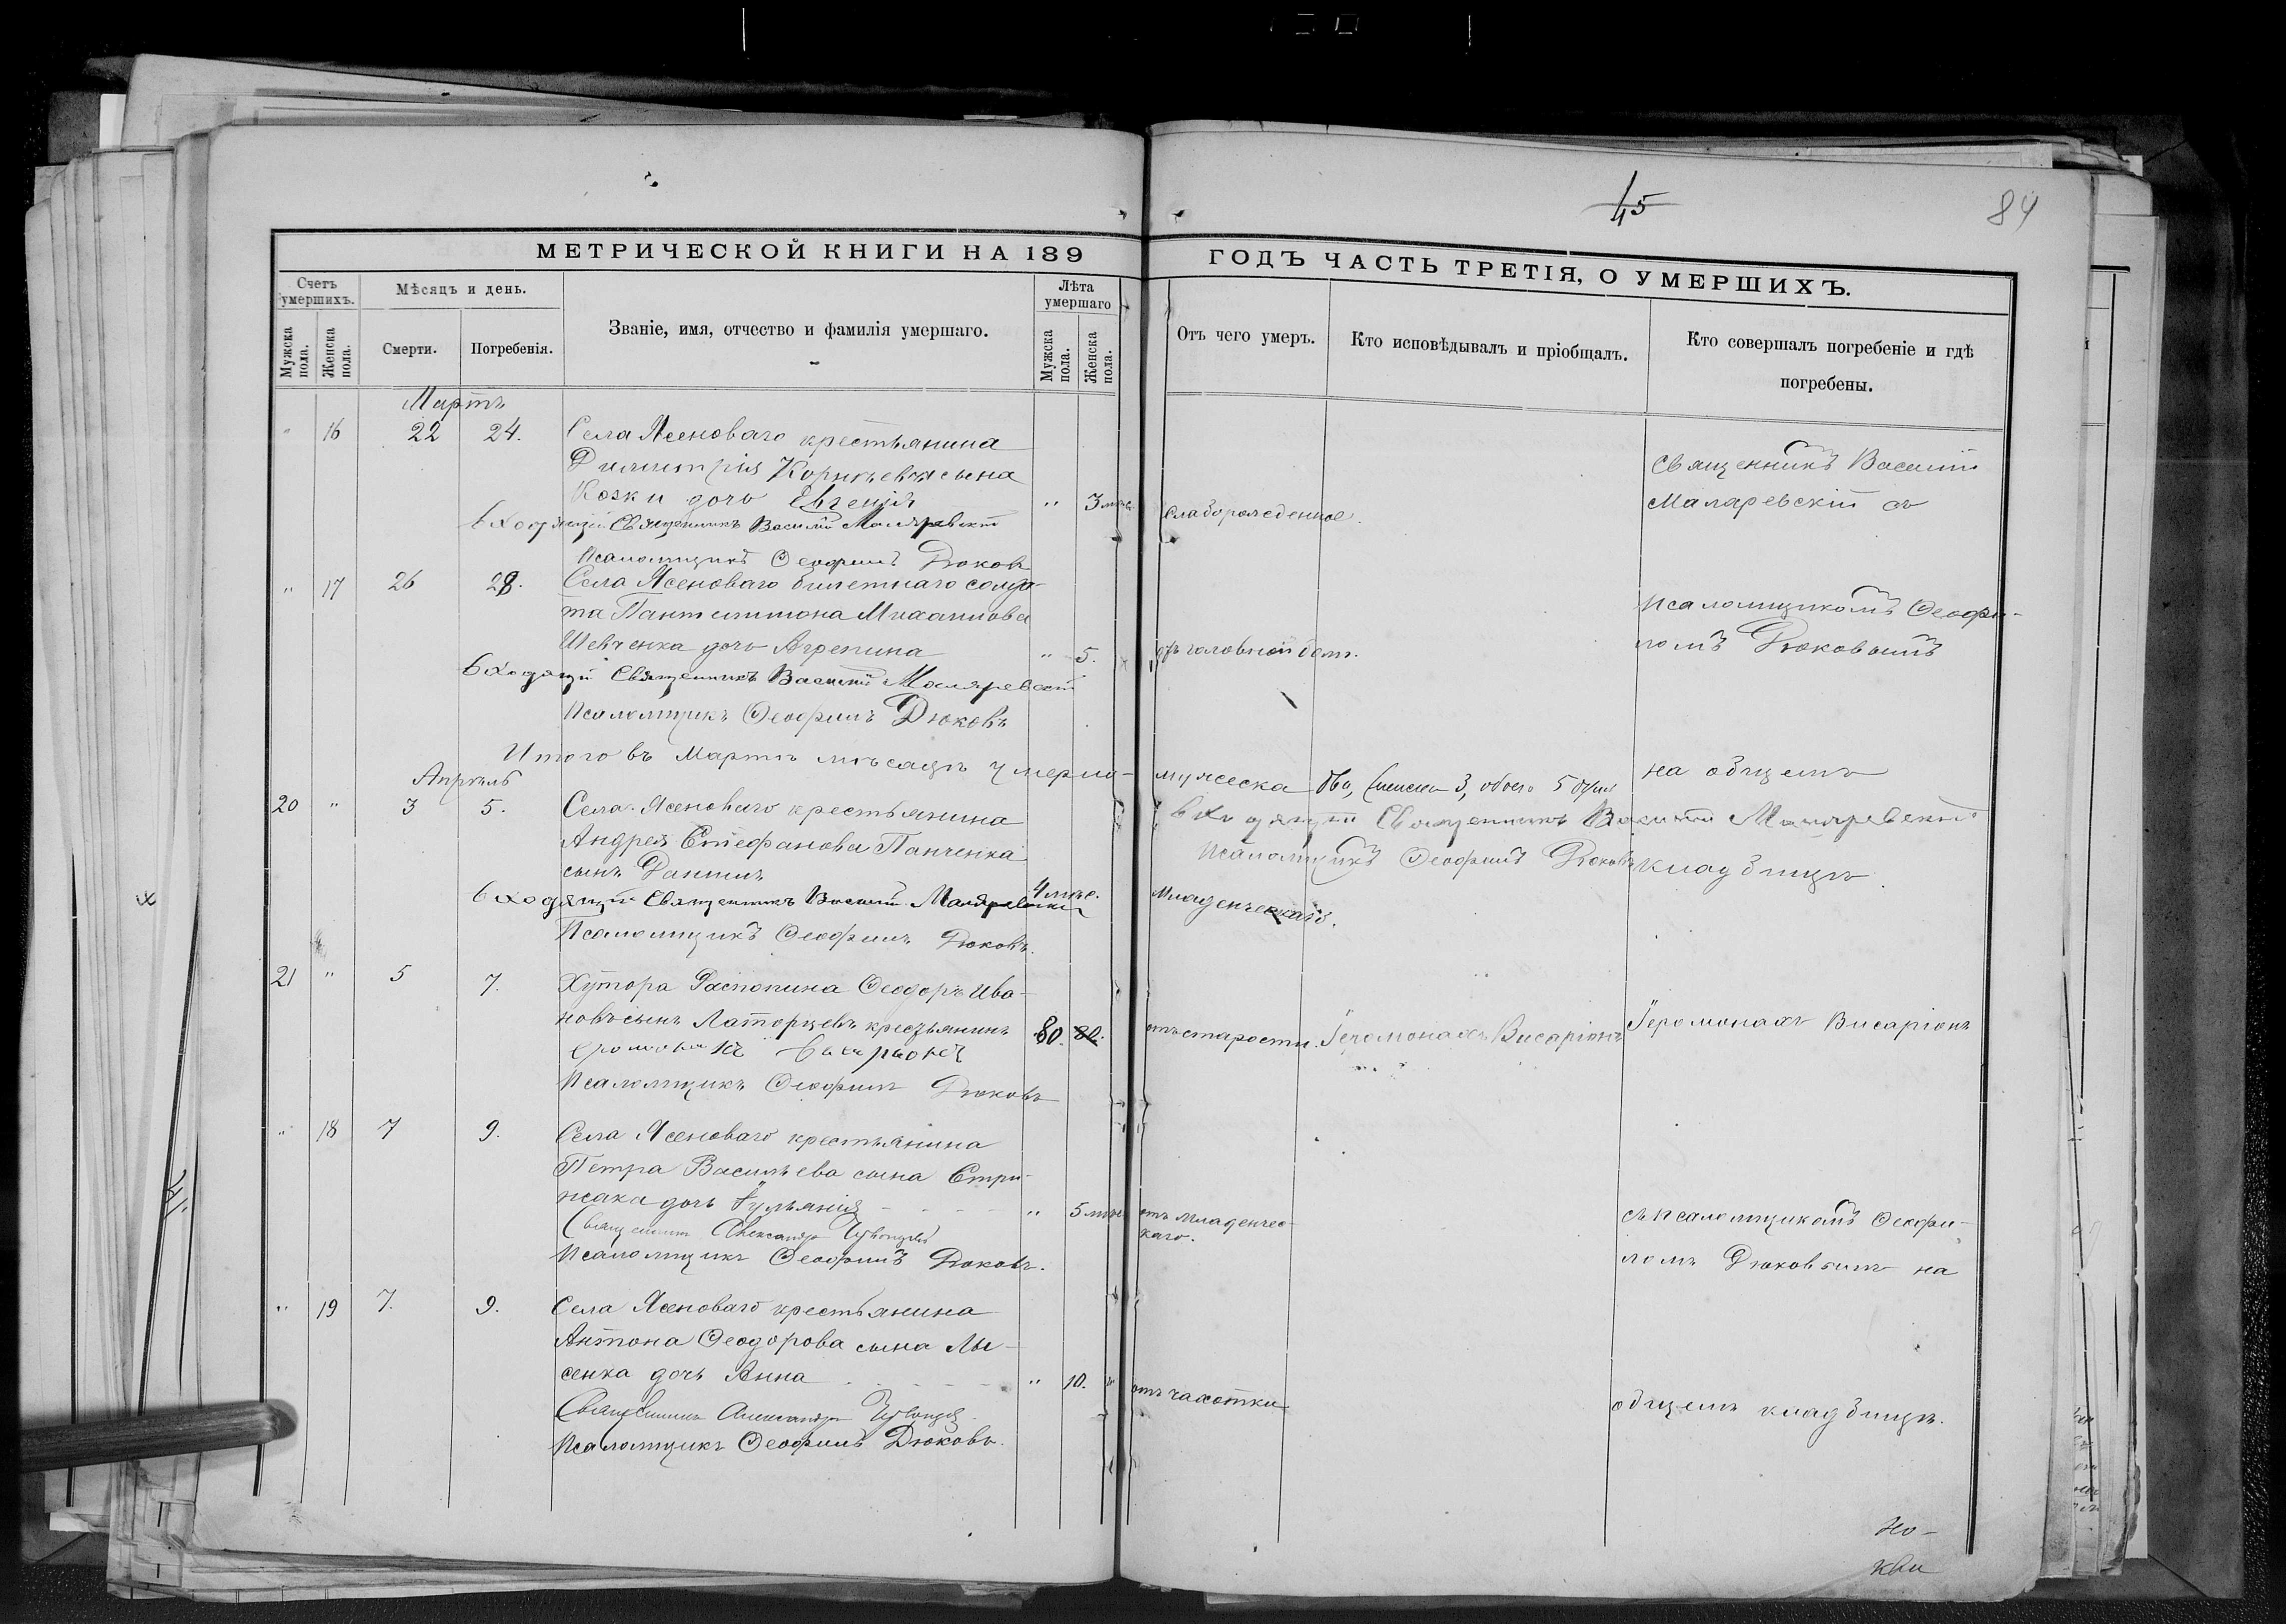 45
84
МЕТРИЧЕСКОЙ КНИГИ НА 189
ГОДЪ ЧАСТЬ ТРЕТІЯ, О УМЕРШИХЪ.
Счетъ умершихъ.
Мѣсяцъ и день.
Званіе, имя, отчество и фамилія умершаго.
Лѣта умершаго
Мужска пола.
Женска пола.
Смерти.
Погребенія.
Мужска пола.
Женска пола.
Отъ чего умеръ.
Кто исповѣдывалъ и пріобщалъ.
Кто совершалъ погребеніе и гдѣ
погребены.
Мартъ
" 16 22 24. Села Ясеноваго крестьянина
Димитрія Корнѣева сына
Козки дочь Евгенія " 3 мѣс. Слаборожденное.
Священникъ Василій
Маляревскій съ
Священникъ Василій Маляревскій
Псаломщикъ Ѳеофилъ Дюковъ
" 17 26 28. Села Ясеноваго билетнаго солда-
та Пантелимона Михаилова
Шевченка дочь Агрепина " 5. отъ головной боли.
Псаломщикомъ Ѳеофи-
ломъ Дюковымъ
Священникъ Василій Маляревскій
Псаломщикъ Ѳеофилъ Дюковъ
Итого въ Мартѣ мѣсяцѣ умерло- мужеска два, женска 3, обоего 5 душъ
на общемъ
Священникъ Василій Маляревскій
Псаломщикъ Ѳеофилъ Дюковъ
кладбищѣ.
Апрѣль
20 " 3 5. Села Ясеноваго крестьянина
Андрея Стефанова Панченка
сынъ Даниилъ 4 мѣс. Младенческаго.
Священникъ Василій Маляревскій
Псаломщикъ Ѳеофилъ Дюковъ.
21 " 5 7. Хутора Распопина Ѳеодоръ Ива-
новъ сынъ Латорцевъ крестьянинъ 80. 80. отъ старости. Іеромонахъ Висаріонъ Іеромонахъ Висаріонъ
Псаломщикъ Ѳеофилъ Дюковъ
" 18 7 9. Села Ясеноваго крестьянина
Петра Васильева сына Стри-
жака дочь Іульянія " 5 мѣс. отъ младенчес-
каго.
съ псаломщикомъ Ѳеофи-
ломъ Дюковымъ на
Священникъ Александръ
Псаломщикъ Ѳеофилъ Дюковъ.
" 19 7. 9. Села Ясеноваго крестьянина
Антона Ѳеодорова сына Лы-
сенка дочь Анна " 10. " отъ чахотки
общемъ кладбищѣ.
Священникъ Александръ
Псаломщикъ Ѳеофилъ Дюковъ.